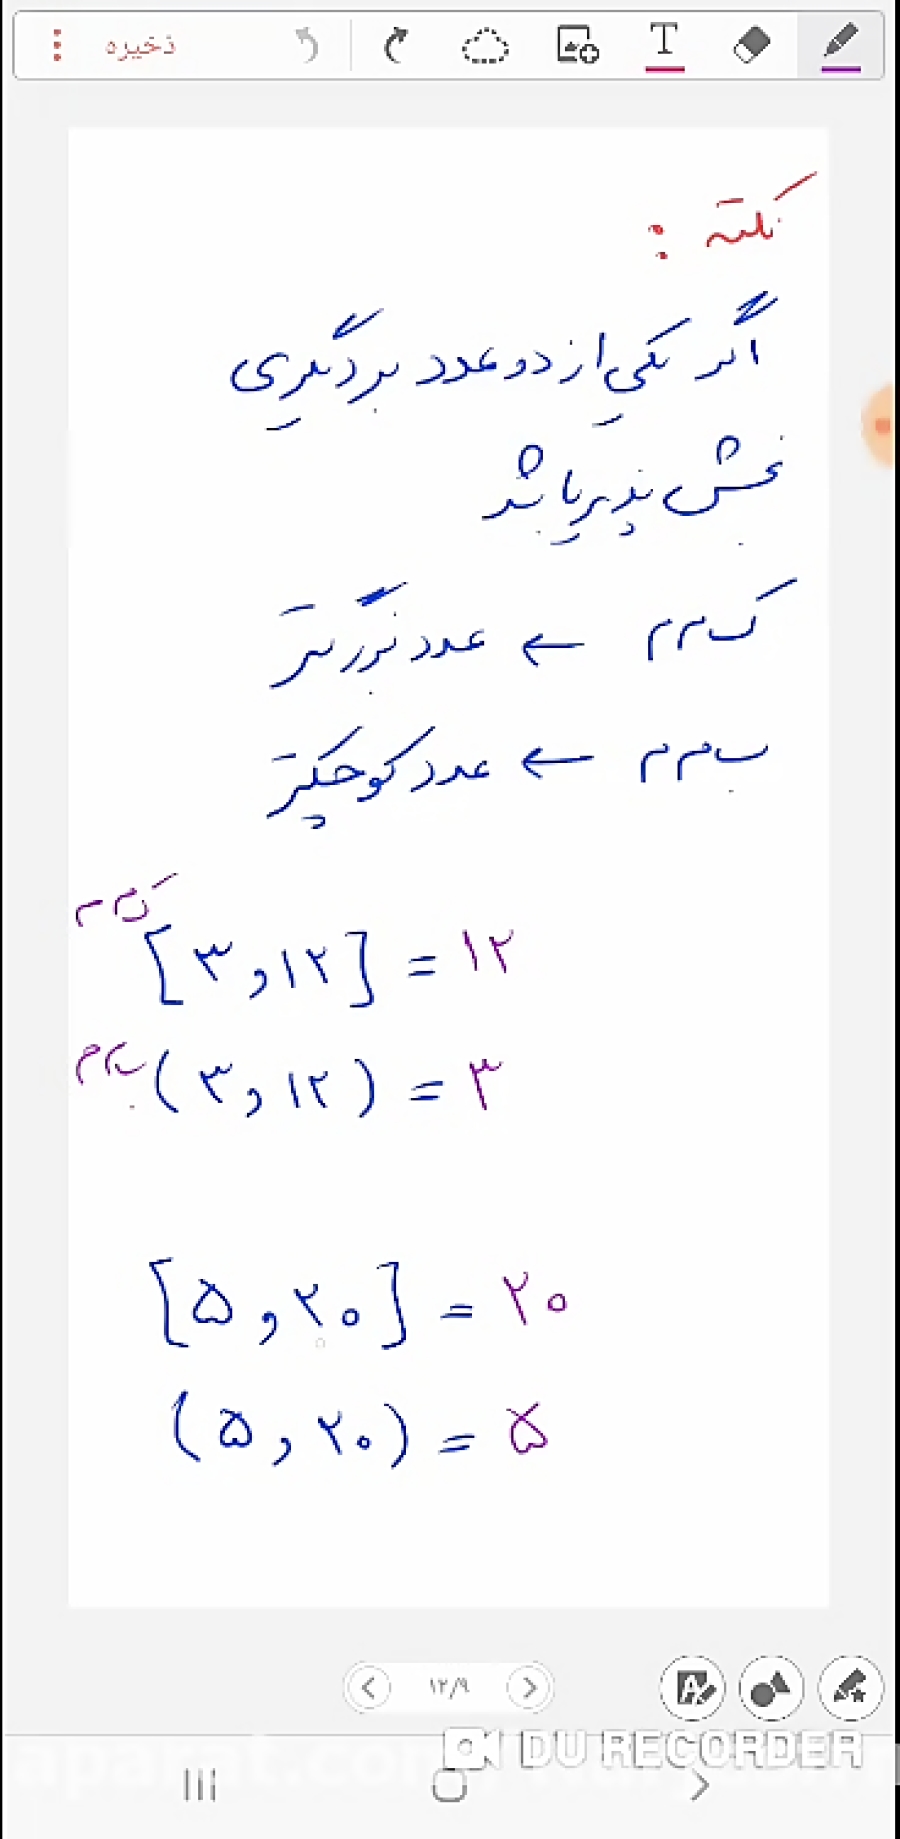 ذخیره
T
نکته :
اگر یکی از دو عدد بر دیگری
بخش پذیر باشد
ک م م ← عدد بزرگتر
ب م م ← عدد کوچکتر
ک م م
[۳ , ۱۲] = ۱۲
ب م م
(۳ , ۱۲) = ۳
[۵ , ۲۰] = ۲۰
(۵ , ۲۰) = ۵
۱۲/۹
DU RECORDER
aparat.com